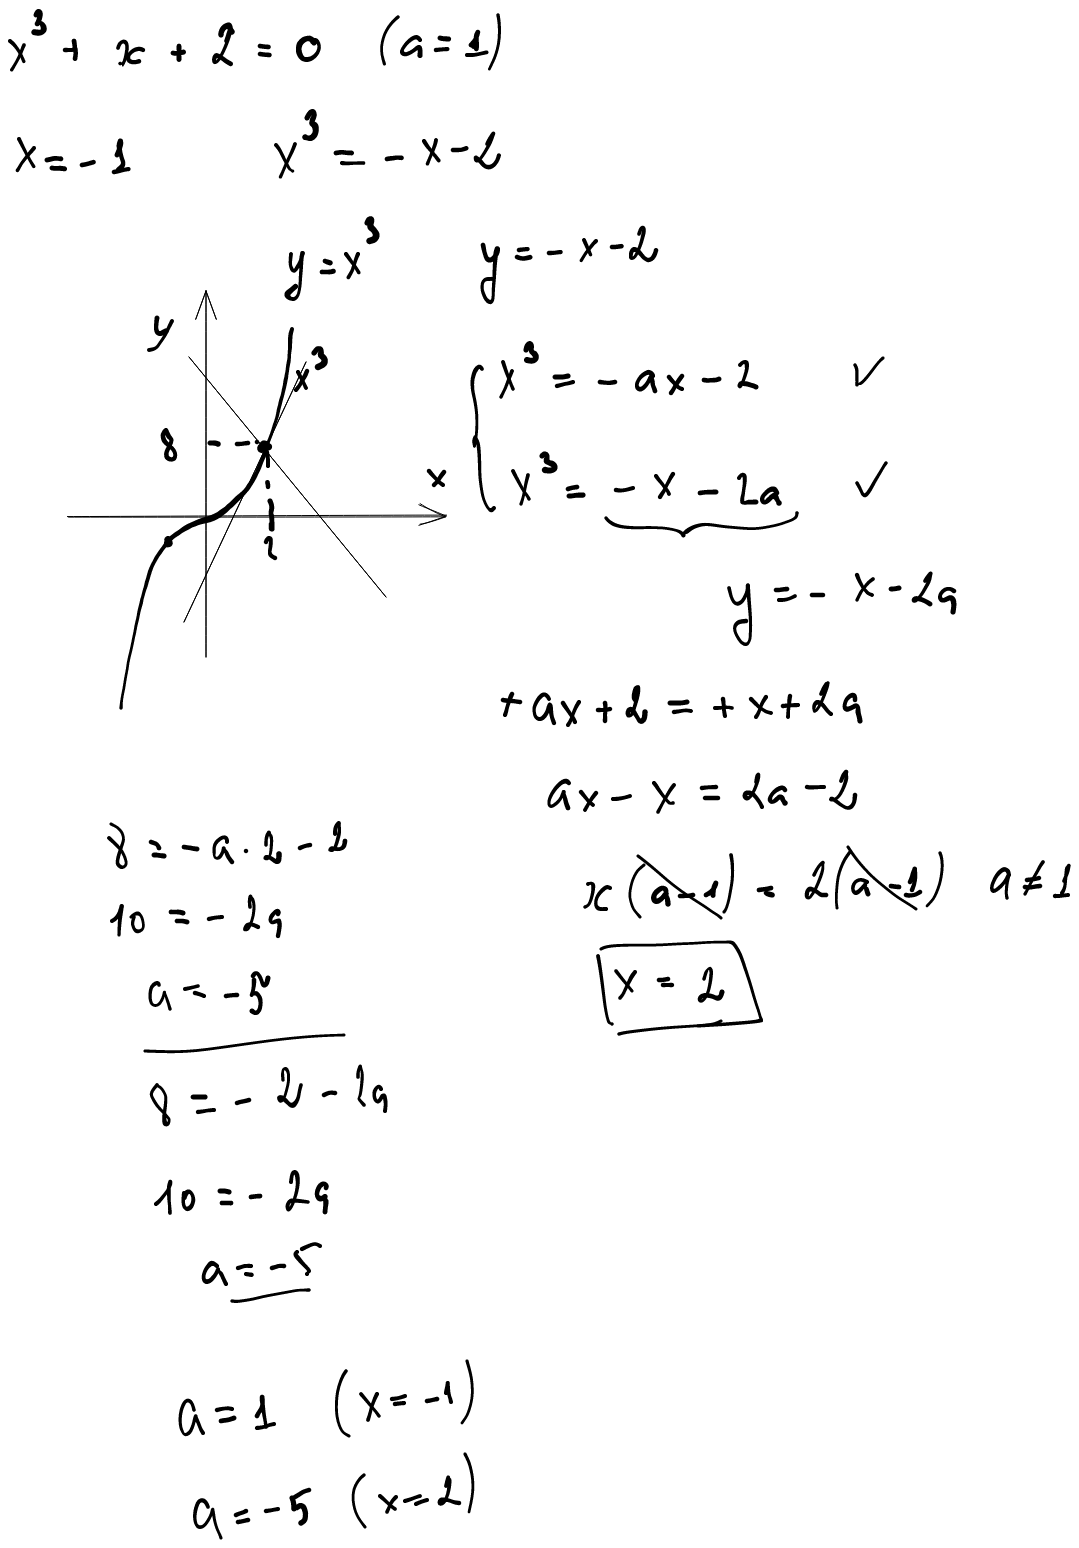 x³ + x + 2 = 0 (a = 1)
x = - 1 x³ = - x - 2
y = x³ y = - x - 2
y
x³
8
x
2
x³ = - ax - 2 ✓
x³ = - x - 2a ✓
y = - x - 2a
+ ax + 2 = + x + 2a
ax - x = 2a - 2
x (a - 1) = 2 (a - 1) a ≠ 1
x = 2
8 = - a · 2 - 2
10 = - 2a
a = - 5
8 = - 2 - 2a
10 = - 2a
a = - 5
a = 1 (x = -1)
a = - 5 (x = 2)